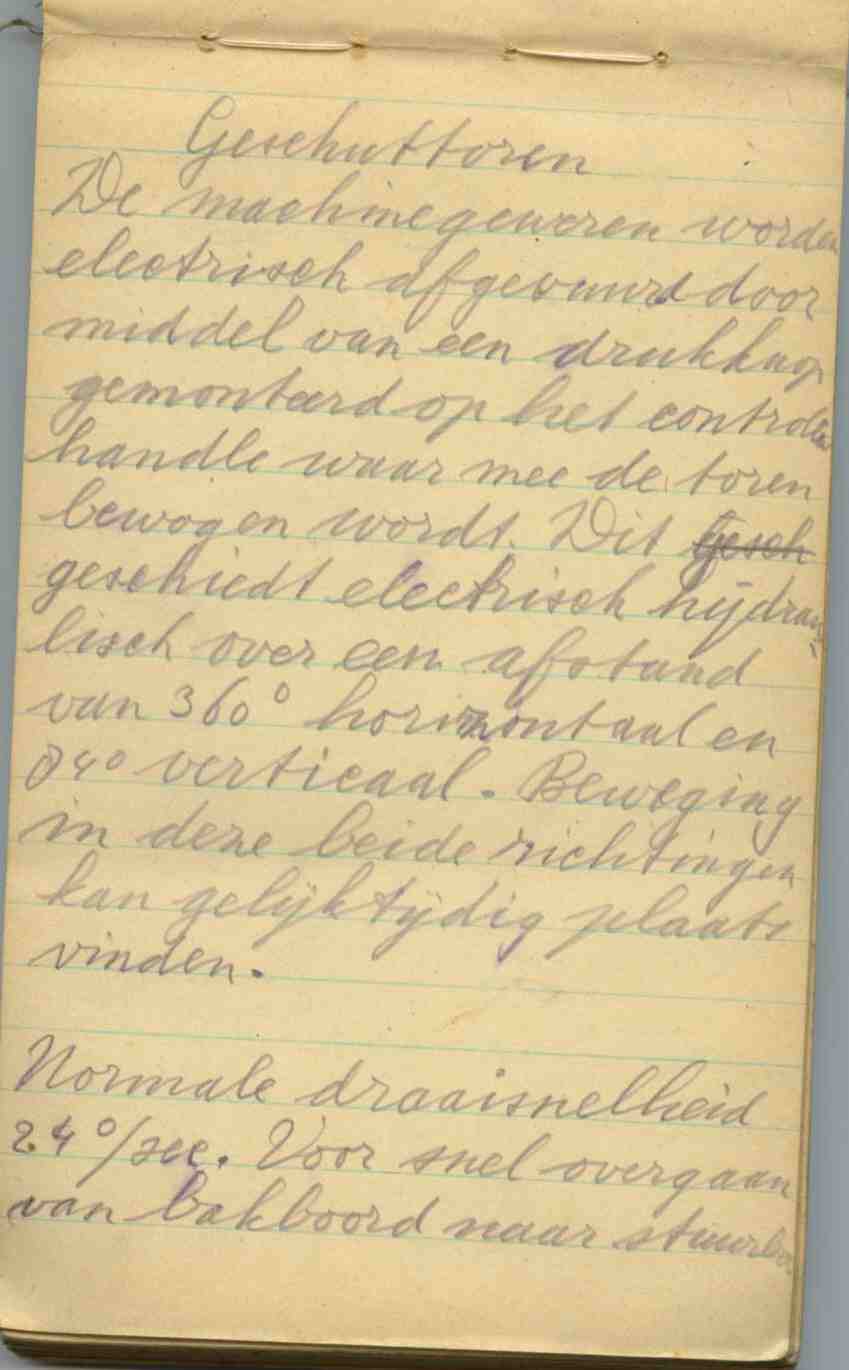 Geschuttoren
De machinegeweren worden
electrisch afgevuurd door
middel van een drukknop
gemonteerd op het controle
handle waar mee de toren
bewogen wordt. Dit Gesch
geschiedt electrisch hijdrau
lisch over een afstand
van 360° horizontaal en
84° verticaal. Beweging
in deze beide richtingen
kan gelijktijdig plaats
vinden.
Normale draaisnelheid
24°/sec. Voor snel overgaan
van bakboord naar stuurbo